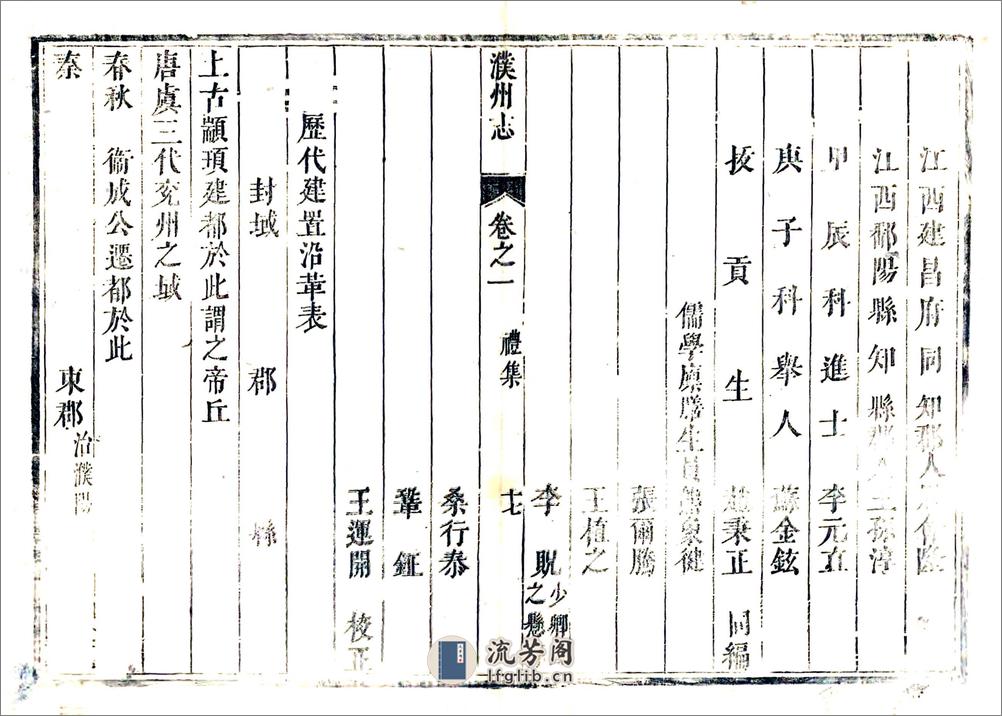 江西建昌府同知郡人
江西鄱陽縣知縣郡人王孫淳
甲辰科進士 李元直
庚子科舉人 蘇金鉉
拔貢生 趙秉正 同編
儒學廩膳生員 象健
張爾騰
王植之
李 貺 少卿之懸
濮州志 卷之一 禮集 七
桑行泰
鞏 鉦
王運開 校正
歷代建置沿革表
封域 郡 縣
上古顓頊建都於此謂之帝丘
唐虞三代兖州之域
春秋 衞成公遷都於此
秦 東郡治濮陽
流芳阁
lfglib.cn